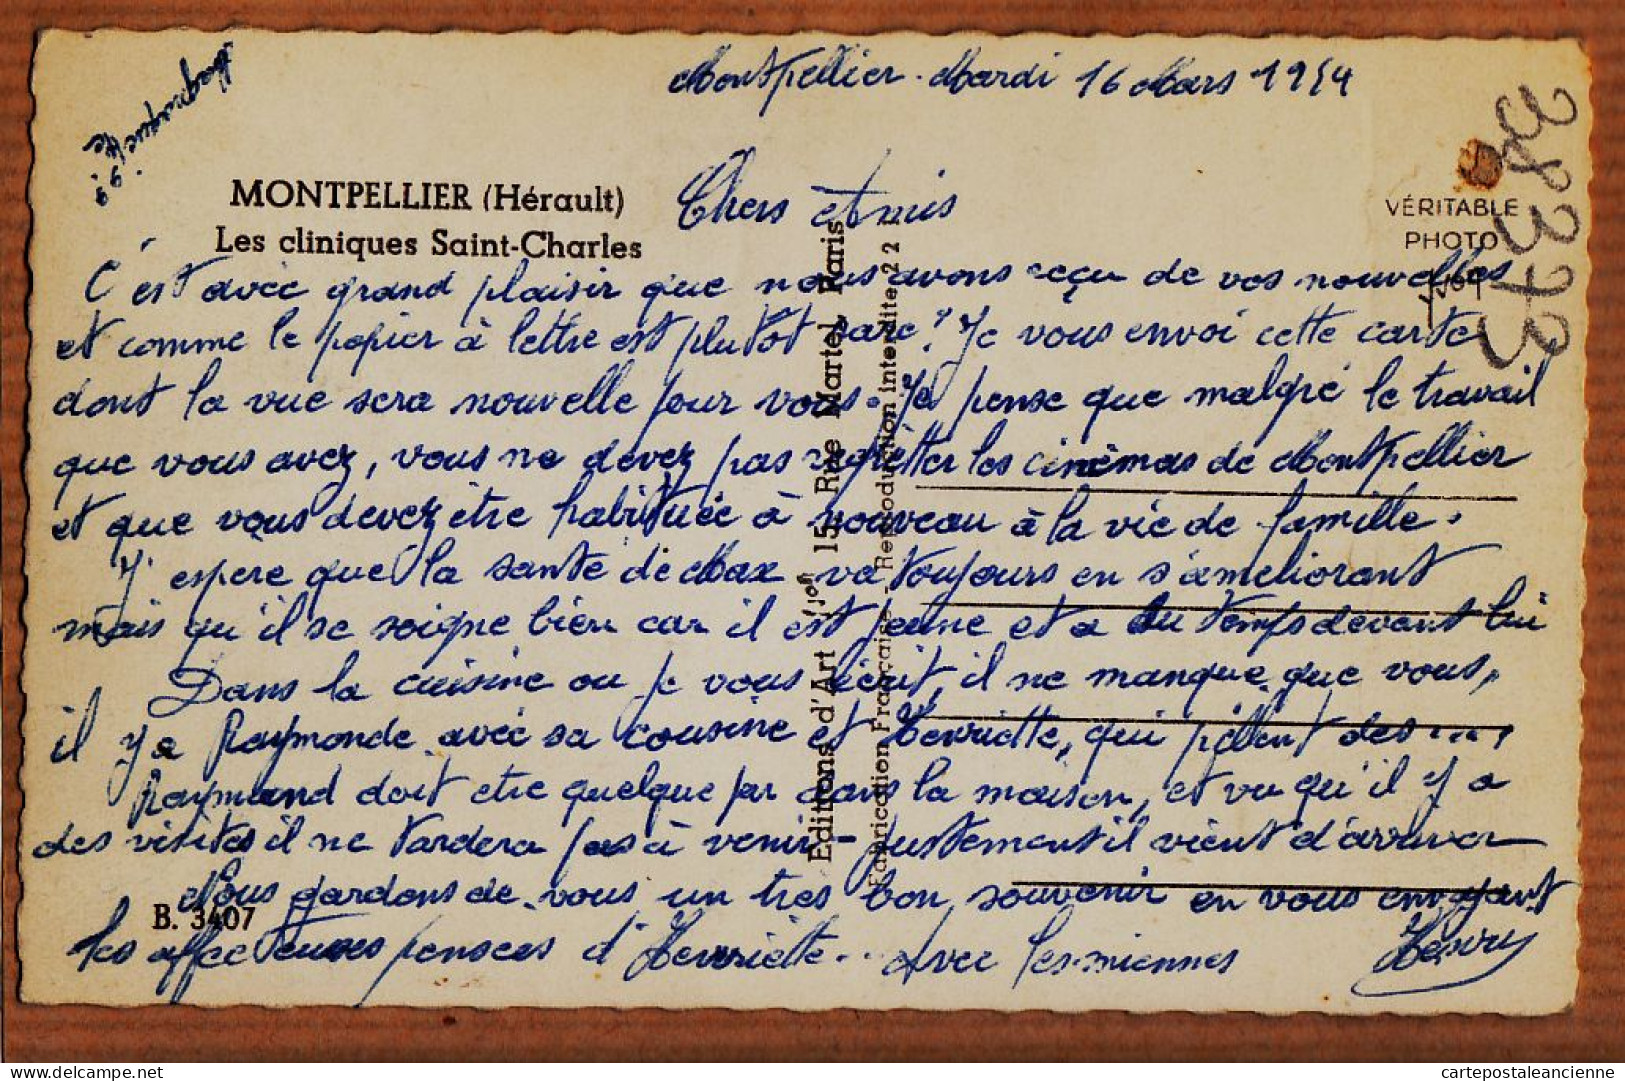 Montpellier. Mardi 16 Mars 1954
MONTPELLIER (Hérault)
Les cliniques Saint-Charles
VÉRITABLE
PHOTO
Chers Amis
C'est avec grand plaisir que nous avons reçu de vos nouvelles
et comme le papier à lettre est plutôt rare? Je vous envoi cette carte
dont la vue sera nouvelle pour vous. Je pense que malgré le travail
que vous avez, vous ne devez pas regretter les cinémas de Montpellier
et que vous devez être habituée à nouveau à la vie de famille.
J'espere que la santé de Max va toujours en s'ameliorant
mais qu'il se soigne bien car il est jeune et a du temps devant lui
Dans la cuisine ou je vous écrit, il ne manque que vous,
il y a Raymonde avec sa cousine et Henriette, qui pèlent des ....
Raymond doit etre quelque par dans la maison, et vu qu'il y a
des visites il ne tardera pas à venir - justement il vient d'arriver
Nous gardons de vous un tres bon souvenir en vous envoyant
les affectueuses pensees d'Henriette... avec les miennes Henry
B. 3407
Editions d'Art "Yvon" 15, Rue Martel, Paris
Fabrication Française - Reproduction interdite 22
cartepostaleancienne